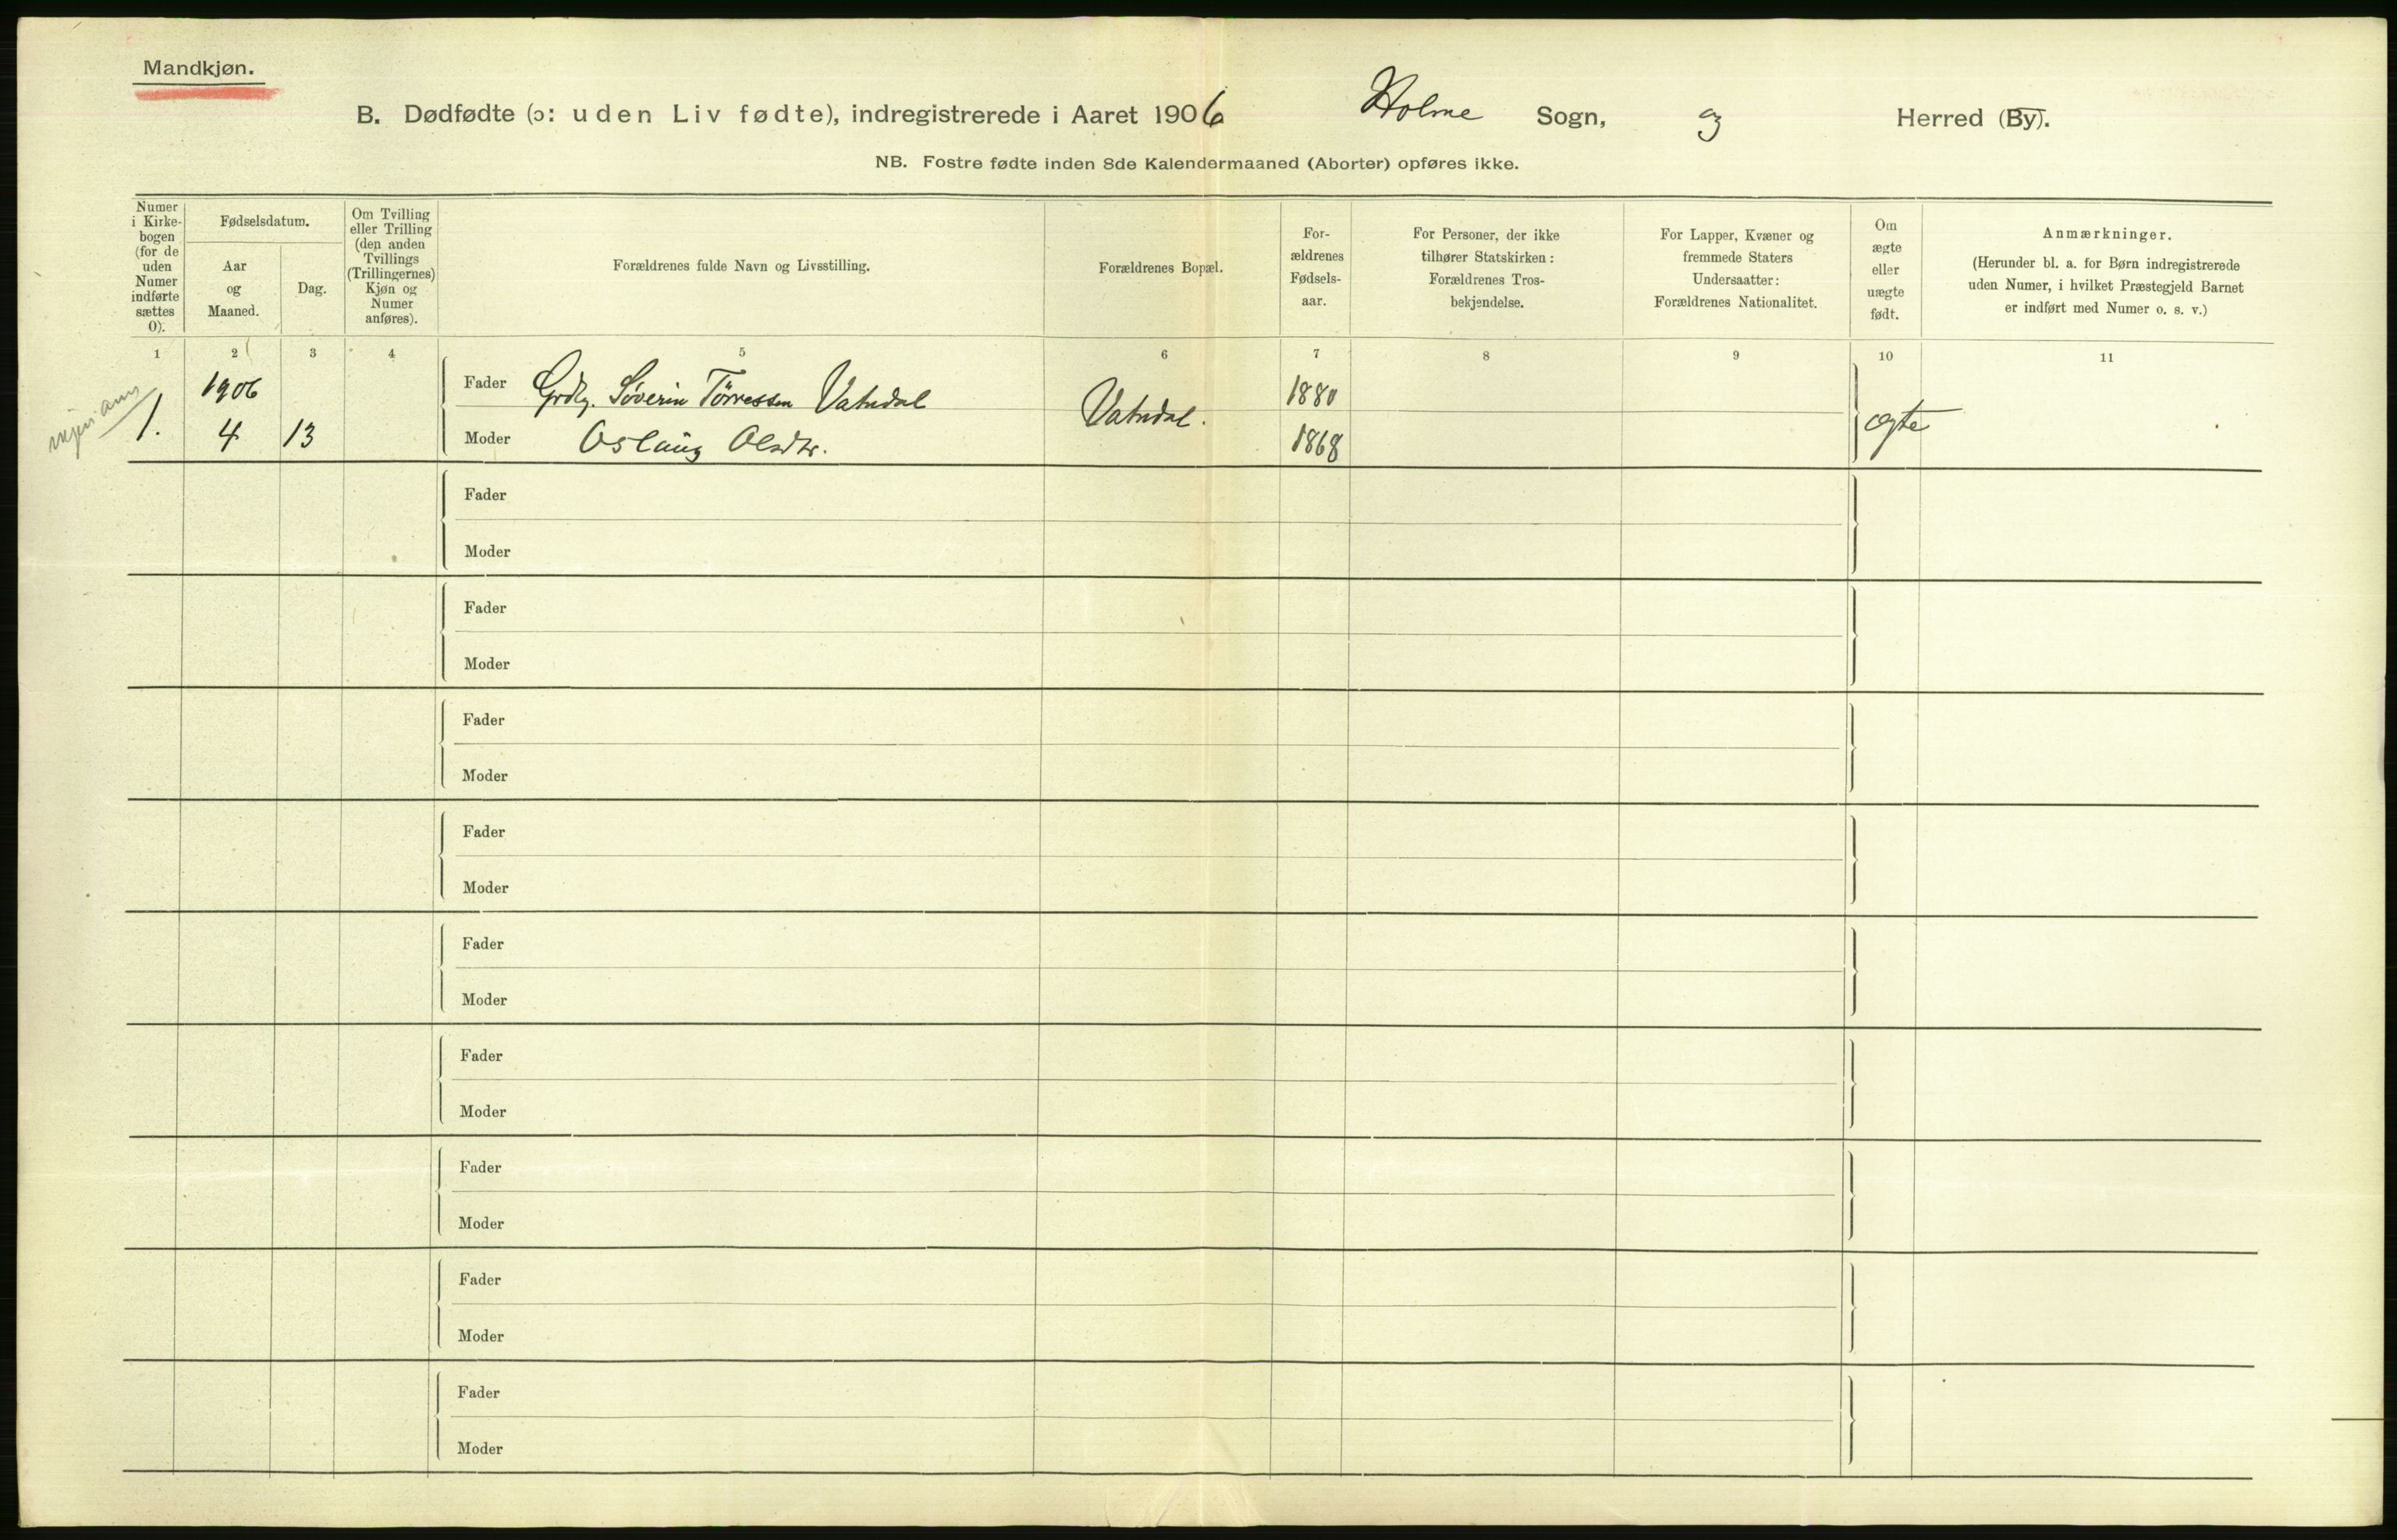 Mandkjøn.
B. Dødfødte (ɔ: uden Liv fødte), indregistrerede i Aaret 1906 Holme Sogn, og Herred (By).
NB. Fostre fødte inden 8de Kalendermaaned (Aborter) opføres ikke.
Numer i Kirkebogen (for de uden Numer indførte sættes 0).
Fødselsdatum.
Aar og Maaned.
Dag.
Om Tvilling eller Trilling (den anden Tvillings (Trillingernes) Kjøn og Numer anføres).
Forældrenes fulde Navn og Livsstilling.
Forældrenes Bopæl.
Forældrenes Fødselsaar.
For Personer, der ikke tilhører Statskirken: Forældrenes Trosbekjendelse.
For Lapper, Kvæner og fremmede Staters Undersaatter: Forældrenes Nationalitet.
Om ægte eller uægte født.
Anmærkninger.
(Herunder bl. a. for Børn indregistrerede uden Numer, i hvilket Præstegjeld Barnet er indført med Numer o. s. v.)
1 2 3 4 5 6 7 8 9 10 11
1. 1906 4 13
Fader Grdbr. Søverin Tørressen Vatndal 1880
Vatndal. ægte
Moder Oslaug Olsdtr. 1868
Fader
Moder
Fader
Moder
Fader
Moder
Fader
Moder
Fader
Moder
Fader
Moder
Fader
Moder
Fader
Moder
Fader
Moder